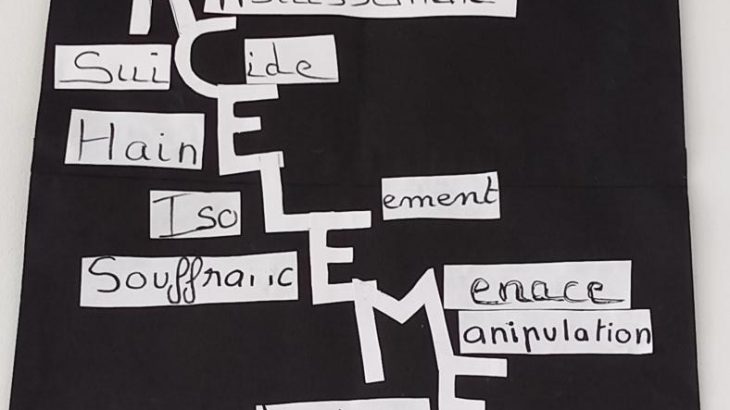 Sui C ide
Hain E
Iso L ement
Souffranc E
M enace
anipulation
E